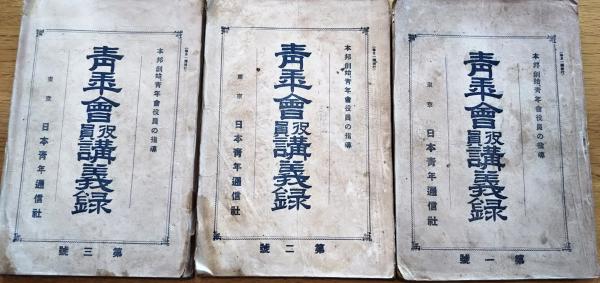 本邦創始青年會役員の指導
青年會役員講義録
東京 日本青年通信社
第一號
本邦創始青年會役員の指導
青年會役員講義録
東京 日本青年通信社
第二號
本邦創始青年會役員の指導
青年會役員講義録
東京 日本青年通信社
第三號